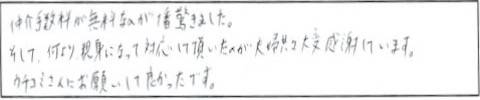 仲介手数料が無料なのが1番驚きました。
そして、何より親身になって対応して頂いたのが夫婦共々大変感謝しています。
カチコミさんにお願いして良かったです。